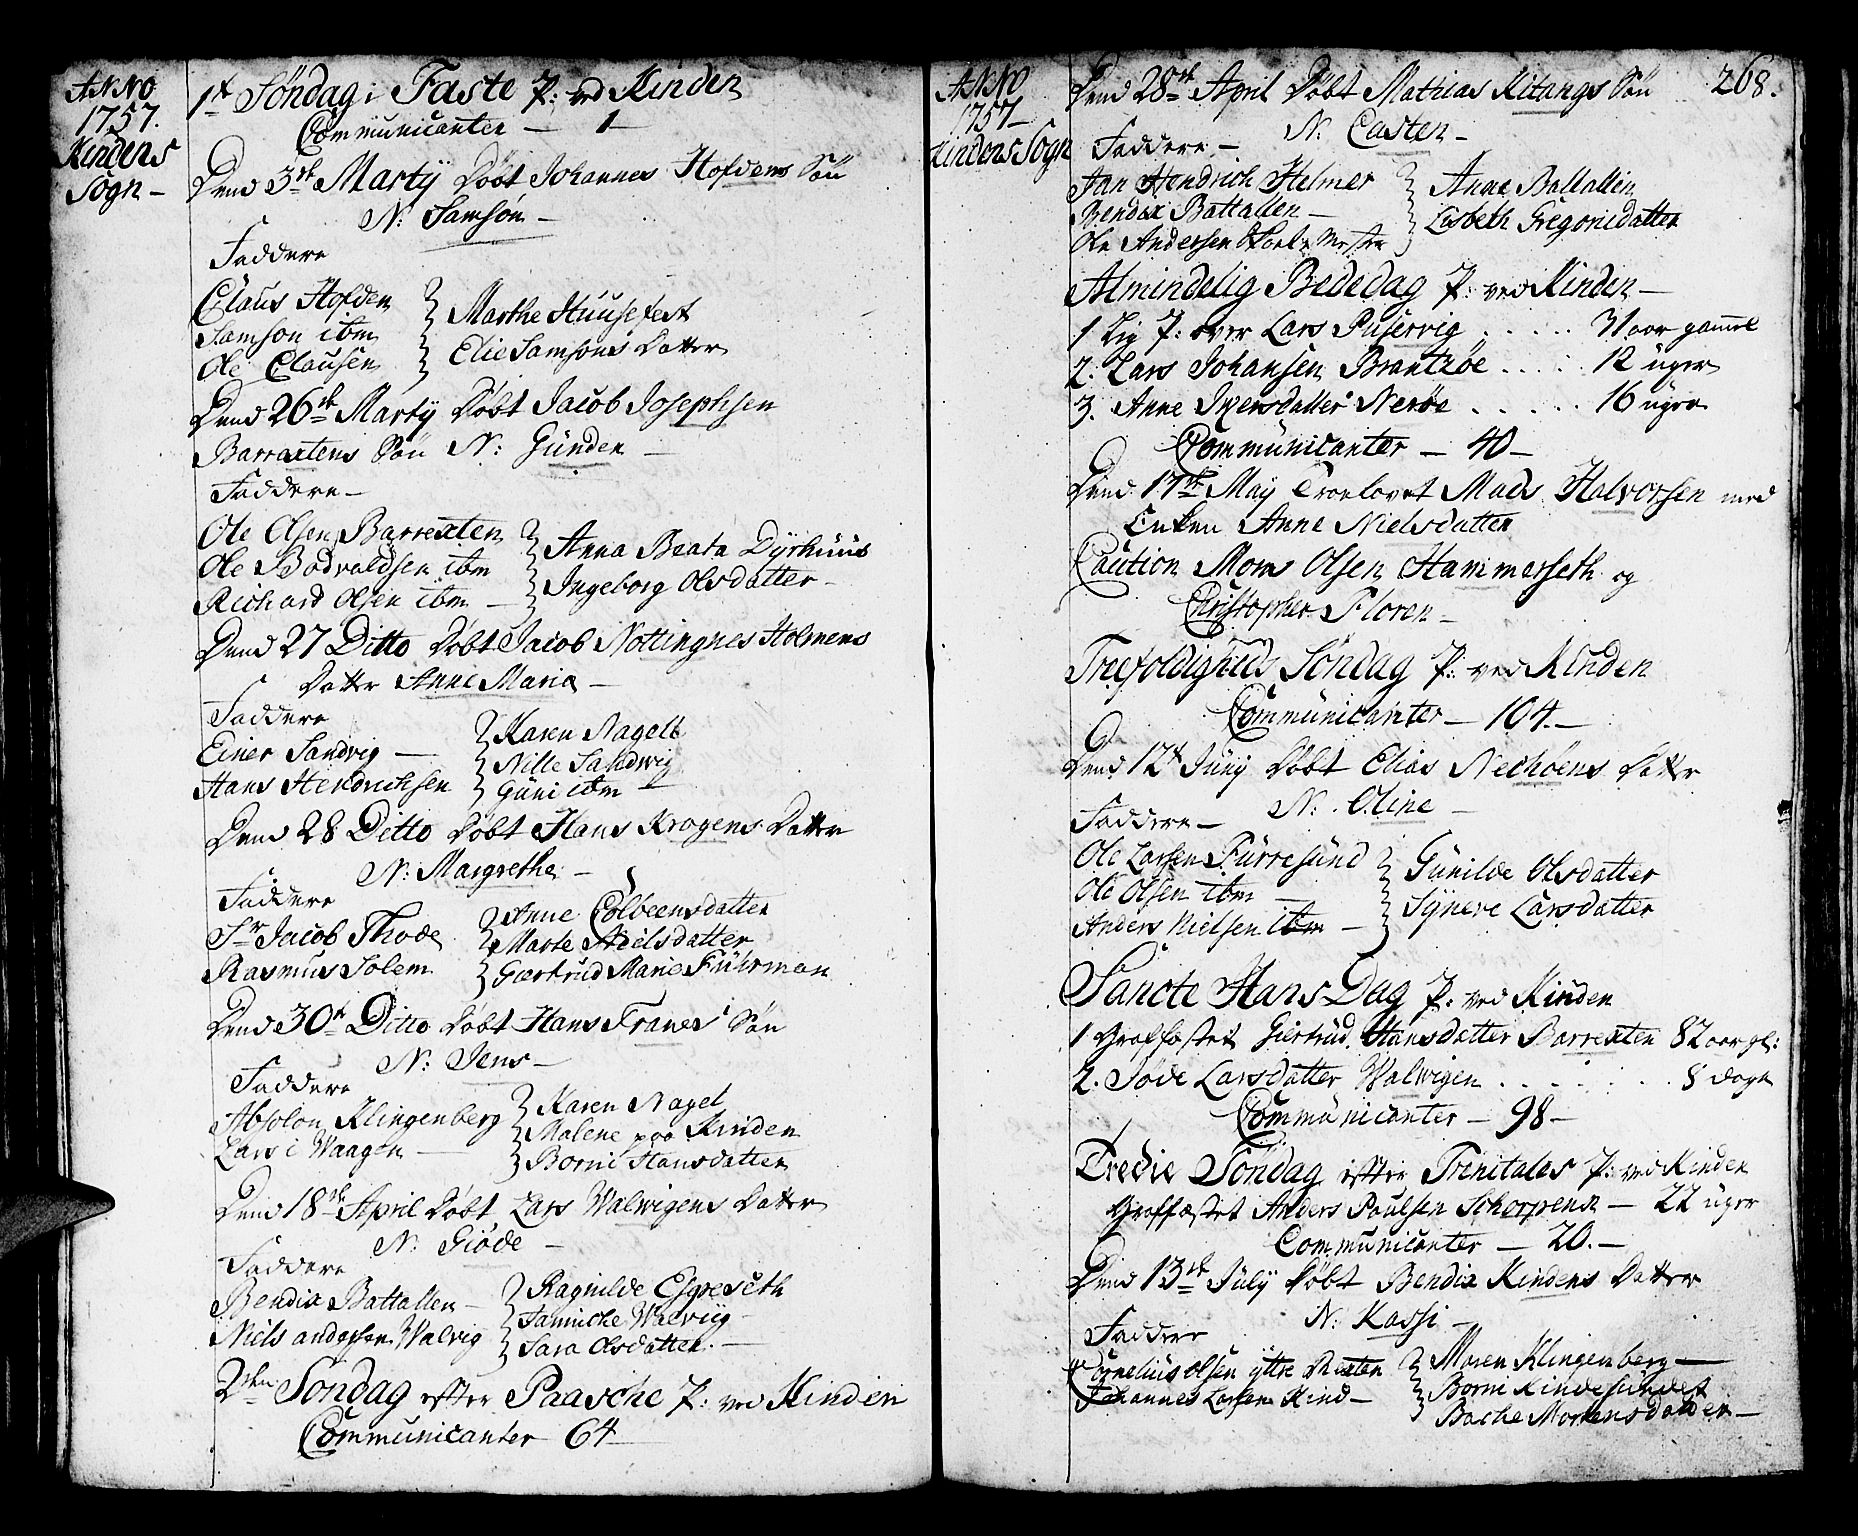 ANNO
1757.
Kindens
Sogn -
1t Söndag i Faste P: ved Kinden
Communicanter - 1 -
Dend 3die Martÿ Döbt Johannes Hofdens Sön
N: Samsön -
Faddere
Claus Hofden
Samson ibm
Ole Clausen
Marthe Huusefest
Elie Samsons Datter
Dend 26de Martÿ Döbt Jacob Josephsen
Barrextens Sön N: Günder -
Faddere -
Ole Olsen Barrexten
Ole Bodvaldsen ibm
Richard Olsen ibm -
Anna Beata Dÿrhuus
Ingeborg Olsdatter -
Dend 27 Ditto Döbt Jacob Nottingnes Holmens
Datter Anne Maria -
Faddere
Einer Sandvig -
Hans Hendrichsen
Karen Nagell
Nille Sandwig
Güni ibm -
Dend 28 Ditto Döbt Hans Krogens Datter
N: Margrethe -
Faddere
Sr Jacob Thode
Rasmus Solem
Anne Colbeensdatter
Marte Nielsdatter
Gertrud Marie Führman
Dend 30te Ditto Döbt Hans Franes Sön
N: Jens -
Faddere
Absolon Klingenberg
Lars i Waagen -
Karen Nagel
Malene paa Kinden
Borni Hansdatter
Dend 18de April Döbt Lars Walwigens Datter
N: Giöde -
Faddere
Bendix Battallen -
Niels andersen Walvig
Ragnilde Espeseth
Jannicke Walviig
Sara Olsdatter. -
2den Söndag efter Paasche P: ved Kinden
Communicanter 64
ANNO
1757 -
Kindens Sogn
268.
Dend 28de April Döbt Matias Kitangs Sön
N: Casten -
Faddere -
Jan Hendrich Helmer
Bendix Battallen -
Ole Andersen Skoele Mester
Anne Ballallin
Lisbeth Gregorisdatter
Almindelig Bededag P: ved Kinden -
1 Lig P: over Lars Püservig ..... 31 aar gamel
2. Lars Johansen Brantzöe ..... 12 uger
3. Anne Iversdatter Neröe ..... 16 ugra
Communicanter - 40 -
Dend 17de Maÿ Troelovet Mads Halvorsen med
Enken Anne Nielsdatter
Caution Mons Olsen Hammerseth og
Christopher Floren -
Trefoldigheds Söndag P: ved Kinden
Communicanter - 104. -
Dend 12te Junÿ Döbt Elias Nechöens Datter
N: Oline -
Faddere -
Ole Larsen Fürresünd
Ole Olsen ibm -
Anders Nielsen ibm -
Günilde Olsdatter
Sÿneve Larsdatter
Sancte Hans Dag P: ved Kinden
1 Graffæstet Giertrud Hansdatter Barrexten 82 aar gl:
2. Jöde Larsdatter Walwigen ....... 8 dage
Communicanter - 98 -
Tredie Söndag efter Trinitates P: ved Kinden
Graffæstet Anders Poulsen Schorpena - 22 uger
Communicanter - 20. -
Dend 13de Julÿ Döbt Bendix Kindens Datter
N: Kassi -
Fadder
Cornelius Olsen ÿtre Rexten
Johannes Larsen Kind -
Maren Klingenberg -
Borni Kindesündet
Barbe Mortensdatter -